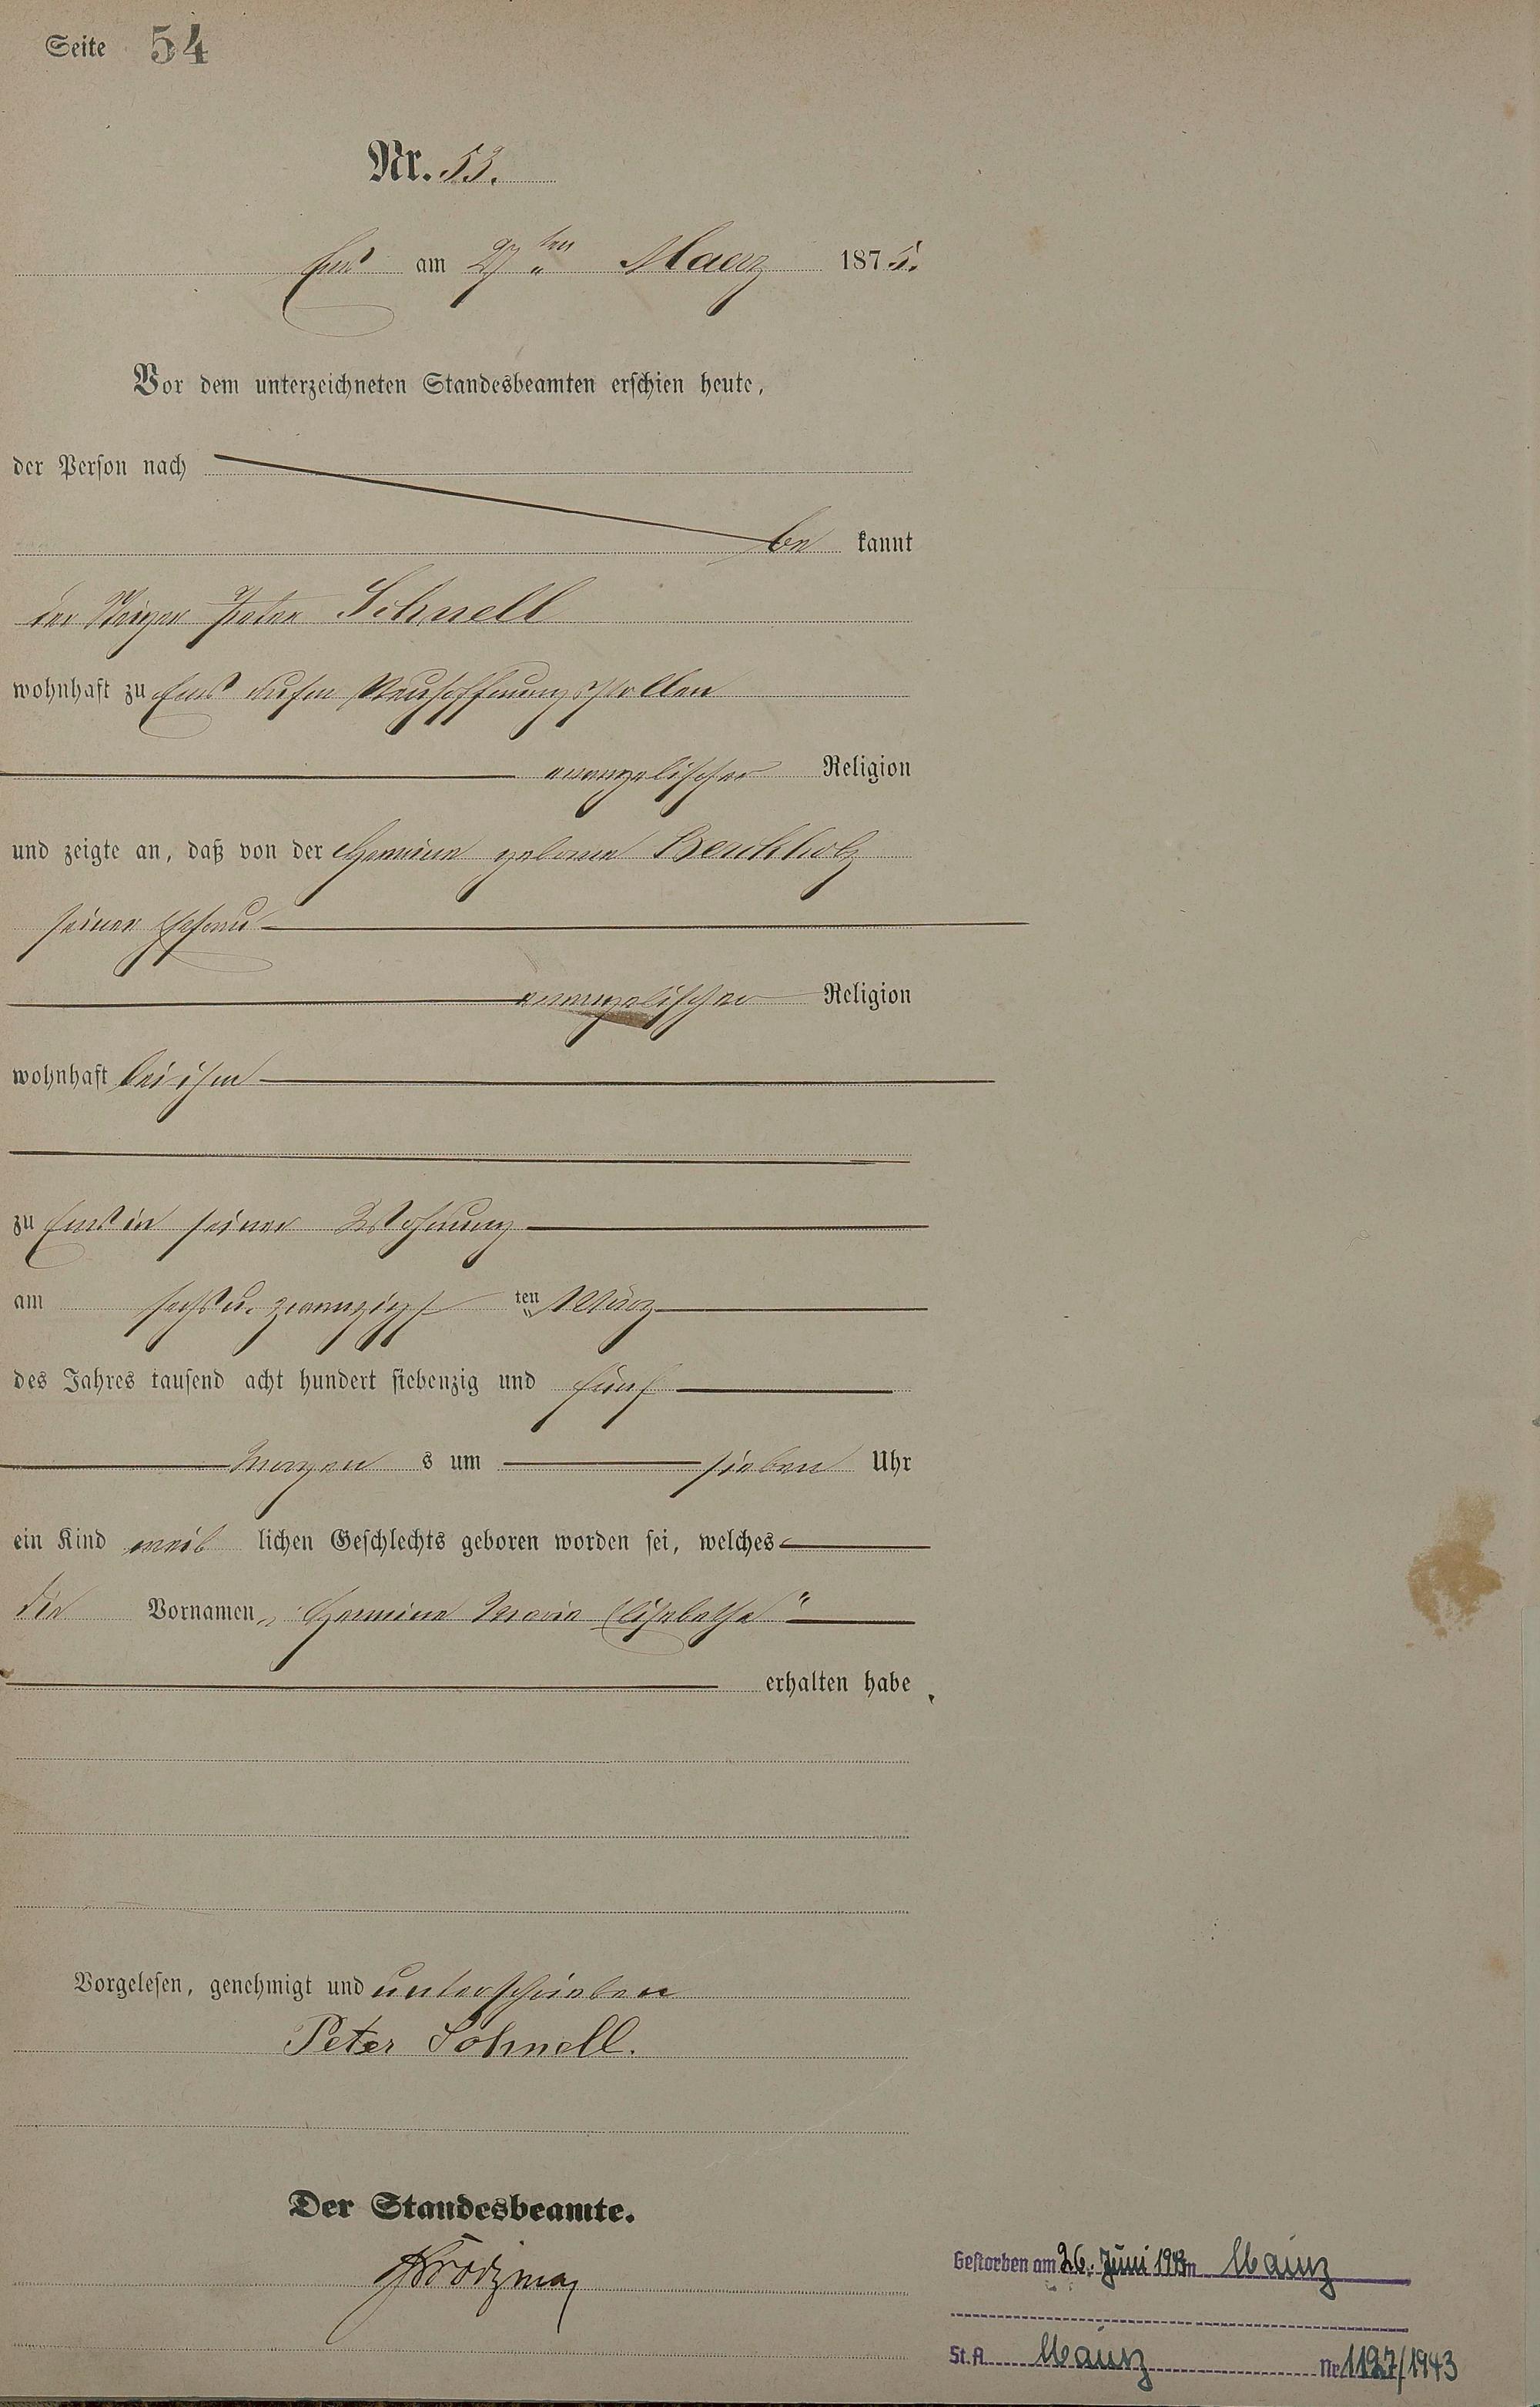 Seite 54
Nr. 53.
Ems am 27ten Maerz 1875.
Vor dem unterzeichneten Standesbeamten erschien heute,
der Person nach
be kannt
der Steiger Peter Schnell
wohnhaft zu Ems auf'm Neuhoffnungsstollen
evangelischer Religion
und zeigte an, daß von der Hermine geborene Berkholz
seiner Ehefrau
evangelischer Religion
wohnhaft bei ihm
zu Ems in seiner Wohnung
am sechs u. zwanzigsten März
des Jahres tausend acht hundert siebenzig und fünf
Morgens um sieben Uhr
ein Kind weiblichen Geschlechts geboren worden sei, welches
die Vornamen „Hermine Maria Elisabetha"
erhalten habe.
Vorgelesen, genehmigt und unterschrieben
Peter Schnell.
Der Standesbeamte.
Gestorben am 26. Juni 1943 in Mainz
St.A. Mainz Nr 1127/1943